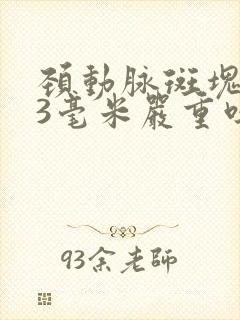 頚動脉斑塊
3毫米嚴重
93余老師